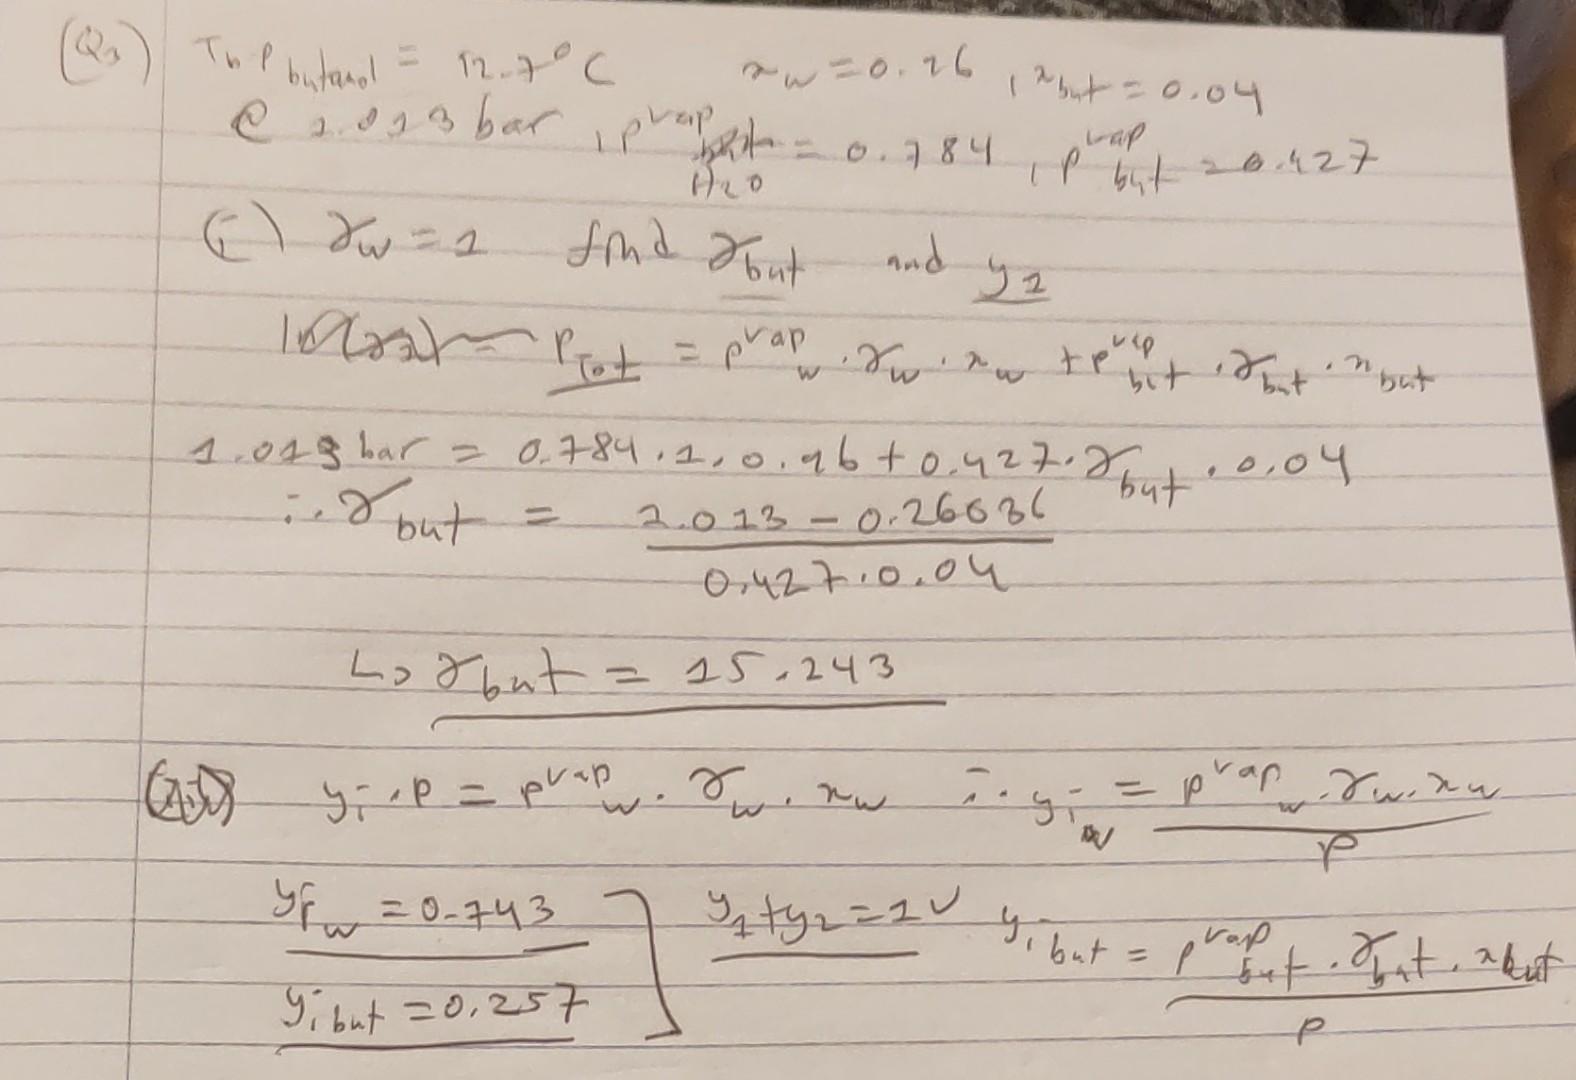 (Q3) Tb.p butanol = 12.7°C xw = 0.26, xbut = 0.04
@ 1.013 bar, p^vap H2O = 0.784, p^vap but = 0.427
(i) γw = 1 find γbut and y2
PTot = p^vap w . γw . xw + p^vap but . γbut . xbut
1.013 bar = 0.784 . 1 . 0.96 + 0.427 . γbut . 0.04
∴ γbut = (1.013 - 0.26636) / (0.427 . 0.04)
↳ γbut = 15.243
yi . P = p^vap w . γw . xw ∴ yi w = (p^vap w . γw . xw) / P
yi w = 0.743 ] y1 + y2 = 1 ✓ yi but = (p^vap but . γbut . xbut) / P
yi but = 0.257